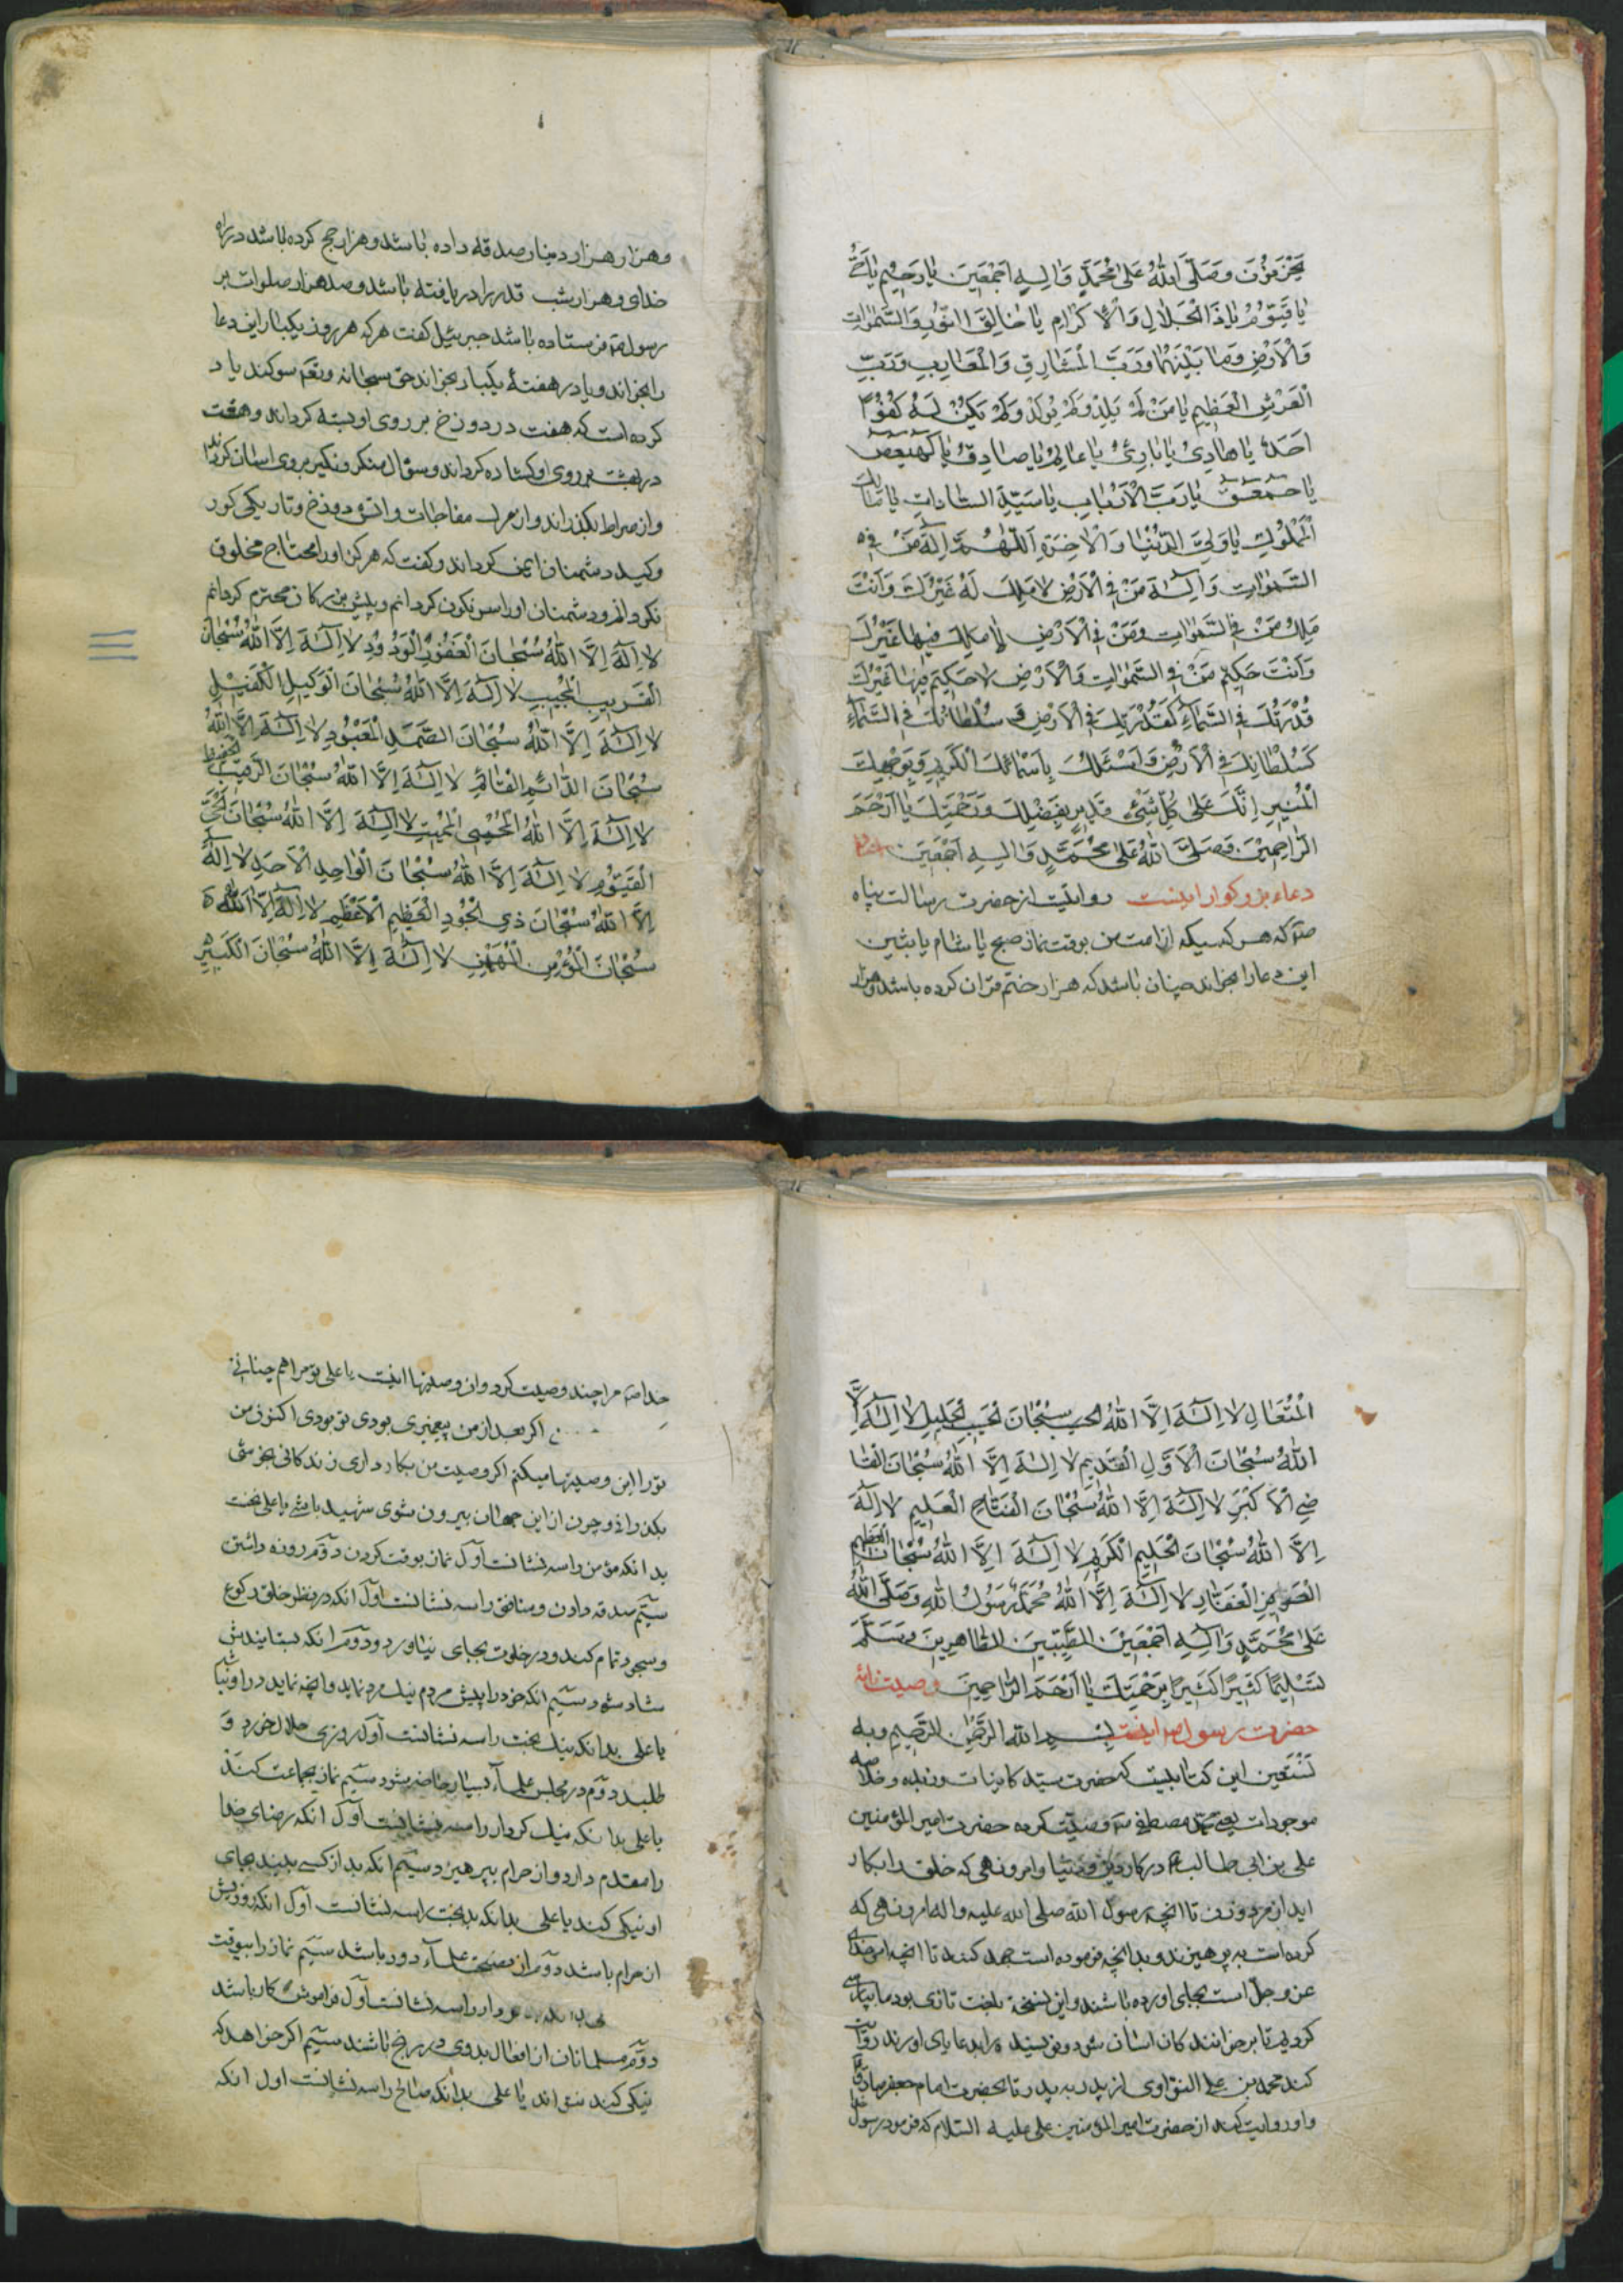 يَحْزَنُونَ وَصَلَّى اللهُ عَلىٰ مُحَمَّدٍ وَالِهِ اَجْمَعينَ يَا رَحيمُ يَا حَىُّ
يَا قَيُّومُ يَا ذَا الْجَلَالِ وَالْاِكْرَامِ يَا خَالِقَ النُّورِ وَالسَّمٰوَاتِ
وَالْاَرْضِ وَمَا بَيْنَهُمَا وَرَبَّ الْمَشَارِقِ وَالْمَغَارِبِ وَرَبَّ
الْعَرْشِ الْعَظيمِ يَا مَنْ لَمْ يَلِدْ وَلَمْ يُولَدْ وَلَمْ يَكُنْ لَهُ كُفُوًا
اَحَدٌ يَا هَادِىُ يَا بَارِئُ يَا عَالِمُ يَا صَادِقُ يَا كهيعص
يَا حمعسق يَا رَبَّ الْاَرْبَابِ يَا سَيِّدَ السَّادَاتِ يَا مَالِكَ
الْمُلُوكِ يَا وَلِىَّ الدُّنْيَا وَالْاٰخِرَةِ اَللّٰهُمَّ اِلٰهَ مَنْ فِى
السَّمٰوَاتِ وَاِلٰهَ مَنْ فِى الْاَرْضِ لَا مَلِكَ لَهُ غَيْرُكَ وَاَنْتَ
مَلِكُ مَنْ فِى السَّمٰوَاتِ وَمَنْ فِى الْاَرْضِ لَا مَلِكَ فيهَا غَيْرُكَ
وَاَنْتَ حَكيمُ مَنْ فِى السَّمٰوَاتِ وَالْاَرْضِ لَا حَكيمَ فيهَا غَيْرُكَ
قُدْرَتُكَ فِى السَّمَآءِ كَقُدْرَتِكَ فِى الْاَرْضِ وَ سُلْطَانُكَ فِى السَّمَآءِ
كَسُلْطَانِكَ فِى الْاَرْضِ وَاَسْئَلُكَ بِاَسْمَائِكَ الْكَريمِ وَبِوَجْهِكَ
الْمُنيرِ اِنَّكَ عَلىٰ كُلِّ شَىْءٍ قَديرٍ بِفَضْلِكَ وَرَحْمَتِكَ يَا اَرْحَمَ
الرَّاحِمينَ وَصَلَّى اللهُ عَلىٰ مُحَمَّدٍ وَالِهِ اَجْمَعينَ
دعاء بزركوار اينست روايتست از حضرت رسالت پناه
ص آله كه هر كسيكه از امت من بوقت نماز صبح يا شام يا پشين
اين دعا را بخواند چنان باشد كه هزار ختم قران كرده باشد و هزار
وهزار هزار دينار صدقه داده باشد و هزار حج كرده باشد در راه
خداى و هزار شب قدر را دريافته باشد و صد هزار صلوات بر
رسول ص فرستاده باشد جبرئيل كفت هر كه هر روز يكبار اين دعا
را بخواند و يا در هفتهٔ يكبار بخواند حق سبحانه وتعم سوكند ياد
كرده است كه هفت در دوزخ بر روى او بسته كرداند و هفت
در بهشت بر روى او كشاده كرداند و سؤال منكر و نكير بروى اسان كرداند
و از صراط بكذراند و از مرك مفاجات و اتش دوزخ و تاريكى كور
و كيد دشمنان ايمن كرداند و كفت كه هركز او را محتاج مخلوق
نكردانم و دشمنان او را سرنكون كردانم و پيش بزركان محترم كردانم
لَا اِلٰهَ اِلَّا اللهُ سُبْحَانَ الْغَفُورِ الْوَدُودِ لَا اِلٰهَ اِلَّا اللهُ سُبْحَانَ
الْقَريبِ الْمُجيبِ لَا اِلٰهَ اِلَّا اللهُ سُبْحَانَ الْوَكيلِ الْكَفيلِ
لَا اِلٰهَ اِلَّا اللهُ سُبْحَانَ الصَّمَدِ الْمَعْبُودِ لَا اِلٰهَ اِلَّا اللهُ
سُبْحَانَ الدَّائِمِ الْقَائِمِ لَا اِلٰهَ اِلَّا اللهُ سُبْحَانَ الرَّقيبِ الْحَفيظِ
لَا اِلٰهَ اِلَّا اللهُ الْمُحْيِى الْمُميتِ لَا اِلٰهَ اِلَّا اللهُ سُبْحَانَ الْحَىِّ
الْقَيُّومِ لَا اِلٰهَ اِلَّا اللهُ سُبْحَانَ الْوَاحِدِ الْاَحَدِ لَا اِلٰهَ
اِلَّا اللهُ سُبْحَانَ ذِى الْجُودِ الْعَظيمِ الْاَعْظَمِ لَا اِلٰهَ اِلَّا اللهُ
سُبْحَانَ الْمُؤْمِنِ الْمُهَيْمِنِ لَا اِلٰهَ اِلَّا اللهُ سُبْحَانَ الْكَبيرِ
الْمُتَعَالِ لَا اِلٰهَ اِلَّا اللهُ سُبْحَانَ الْجَليلِ لَا اِلٰهَ اِلَّا
اللهُ سُبْحَانَ الْاَوَّلِ الْقَديمِ لَا اِلٰهَ اِلَّا اللهُ سُبْحَانَ الْقَا
ضِى الْاَكْبَرِ لَا اِلٰهَ اِلَّا اللهُ سُبْحَانَ الْفَتَّاحِ الْعَليمِ لَا اِلٰهَ
اِلَّا اللهُ سُبْحَانَ الْحَليمِ الْكَريمِ لَا اِلٰهَ اِلَّا اللهُ سُبْحَانَ الْعَظيمِ
الْغَفَّارِ لَا اِلٰهَ اِلَّا اللهُ مُحَمَّدٌ رَسُولُ اللهِ وَصَلَّى اللهُ
عَلىٰ مُحَمَّدٍ وَاٰلِهِ اَجْمَعينَ الطَّيِّبينَ الطَّاهِرينَ وَسَلَّمَ
تَسْليمًا كَثيرًا كَثيرًا بِرَحْمَتِكَ يَا اَرْحَمَ الرَّاحِمينَ وصيت نامهٔ
حضرت رسول ص اينست بسم الله الرحمن الرحيم وبه
نستعين اين كتابيست كه حضرت سيد كاينات و زبده و خلاصه
موجودات يعنى محمد مصطفى ص وصيت كرده حضرت امير المؤمنين
على بن ابى طالب ع در كار دين و دنيا و امر و نهى كه خلق را بكار
ايد از مرد و زن تا انچه رسول الله صلى الله عليه واله امر و نهى كه
كرده است به پرهيزند و بدانچه فرموده است جهد كنند تا انچه امر خداى
عز وجل است بجاى اورده باشند و اين نسخه بلغت تازى بود ما بپارسى
كرديم تا بر خوانند كان اسان شود و نويسنده را بدعا ياى اورند روايت
كند محمد بن على از پدر به پدر تا بحضرت امام جعفر صادق ع
و او روايت كند از حضرت امير المؤمنين على عليه السلام كه فرمود رسول
خدا ص مرا چند وصيت كرد و ان وصيتها اينست يا على تو مرا هم چنانى
اكر بعد از من پيغمبرى بودى تو بودى اكنون من
تو را اين وصيتها ميكنم اكر وصيت من بكار دارى زندكانى بخوشى
بكذرانى و چون از اين جهان بيرون شوى شهيد باشى يا على نخست
بدانكه مؤمن را سه نشانست اول نماز بوقت كردن دوم روزه داشتن
سيم صدقه دادن و منافق را سه نشانست اول انكه در نظر خلق ركوع
و سجود تمام كند و در خلوت بجاى نياورد و دوم انكه بستايندش
شاد شود سيم انكه خود را پيش مردم نيك مرد نمايد و انچه نمايد در او نباشد
يا على بدانكه نيك بخت را سه نشانست اول روزى حلال خورد و
طلبد دوم در مجلس علمآء بسيار حاضر شود سيم نماز بجماعت كند
يا على بدانكه نيك كردار را سه نشانست اول انكه رضاى خدا
را مقدم دارد و از حرام بپرهيزد سيم انكه بد از كسى بيند بجاى
او نيكى كند يا على بدانكه بدبخت را سه نشانست اول انكه روزيش
از حرام باشد دوم از صحبت علمآء دور باشد سيم نماز را بيوقت
را سه نشانست اول فراموش كار باشد
دوم مسلمانان از افعال بد وى در رنج باشند سيم اكر خواهد كه
نيكى كند نتواند يا على بدانكه صالح را سه نشانست اول انكه